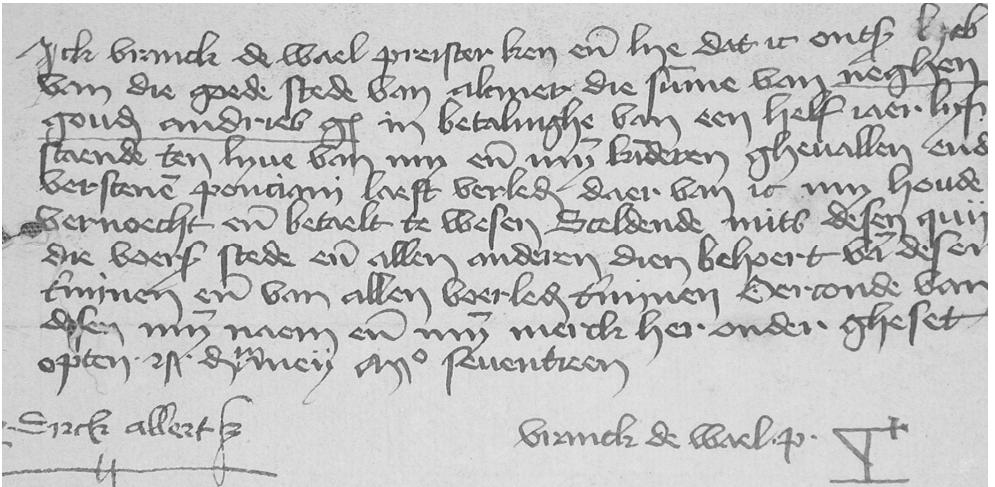 Ick virinck de wael preister ken en̄ lye dat ic onts heb
van die goede stede van alcmer die su̅me van neghen
goud andries gl in betalinghe van een helf iaer lyf
staende ten lyve van my en̄ my kīderen ghevallen end
verstenē ponciani laest verled daer van ic my houde
vernoecht en̄ betaelt te wesen Sceldende mits desen quijt
die voers stede en̄ allen anderen dien behoert vā desen
t'mijnen en̄ van allen voerled t'mijnen Oerconde van
desen my naem en̄ my merck her onder gheset
opten meij An° seventeen
Dirck allert sz
virinck de wael .p.